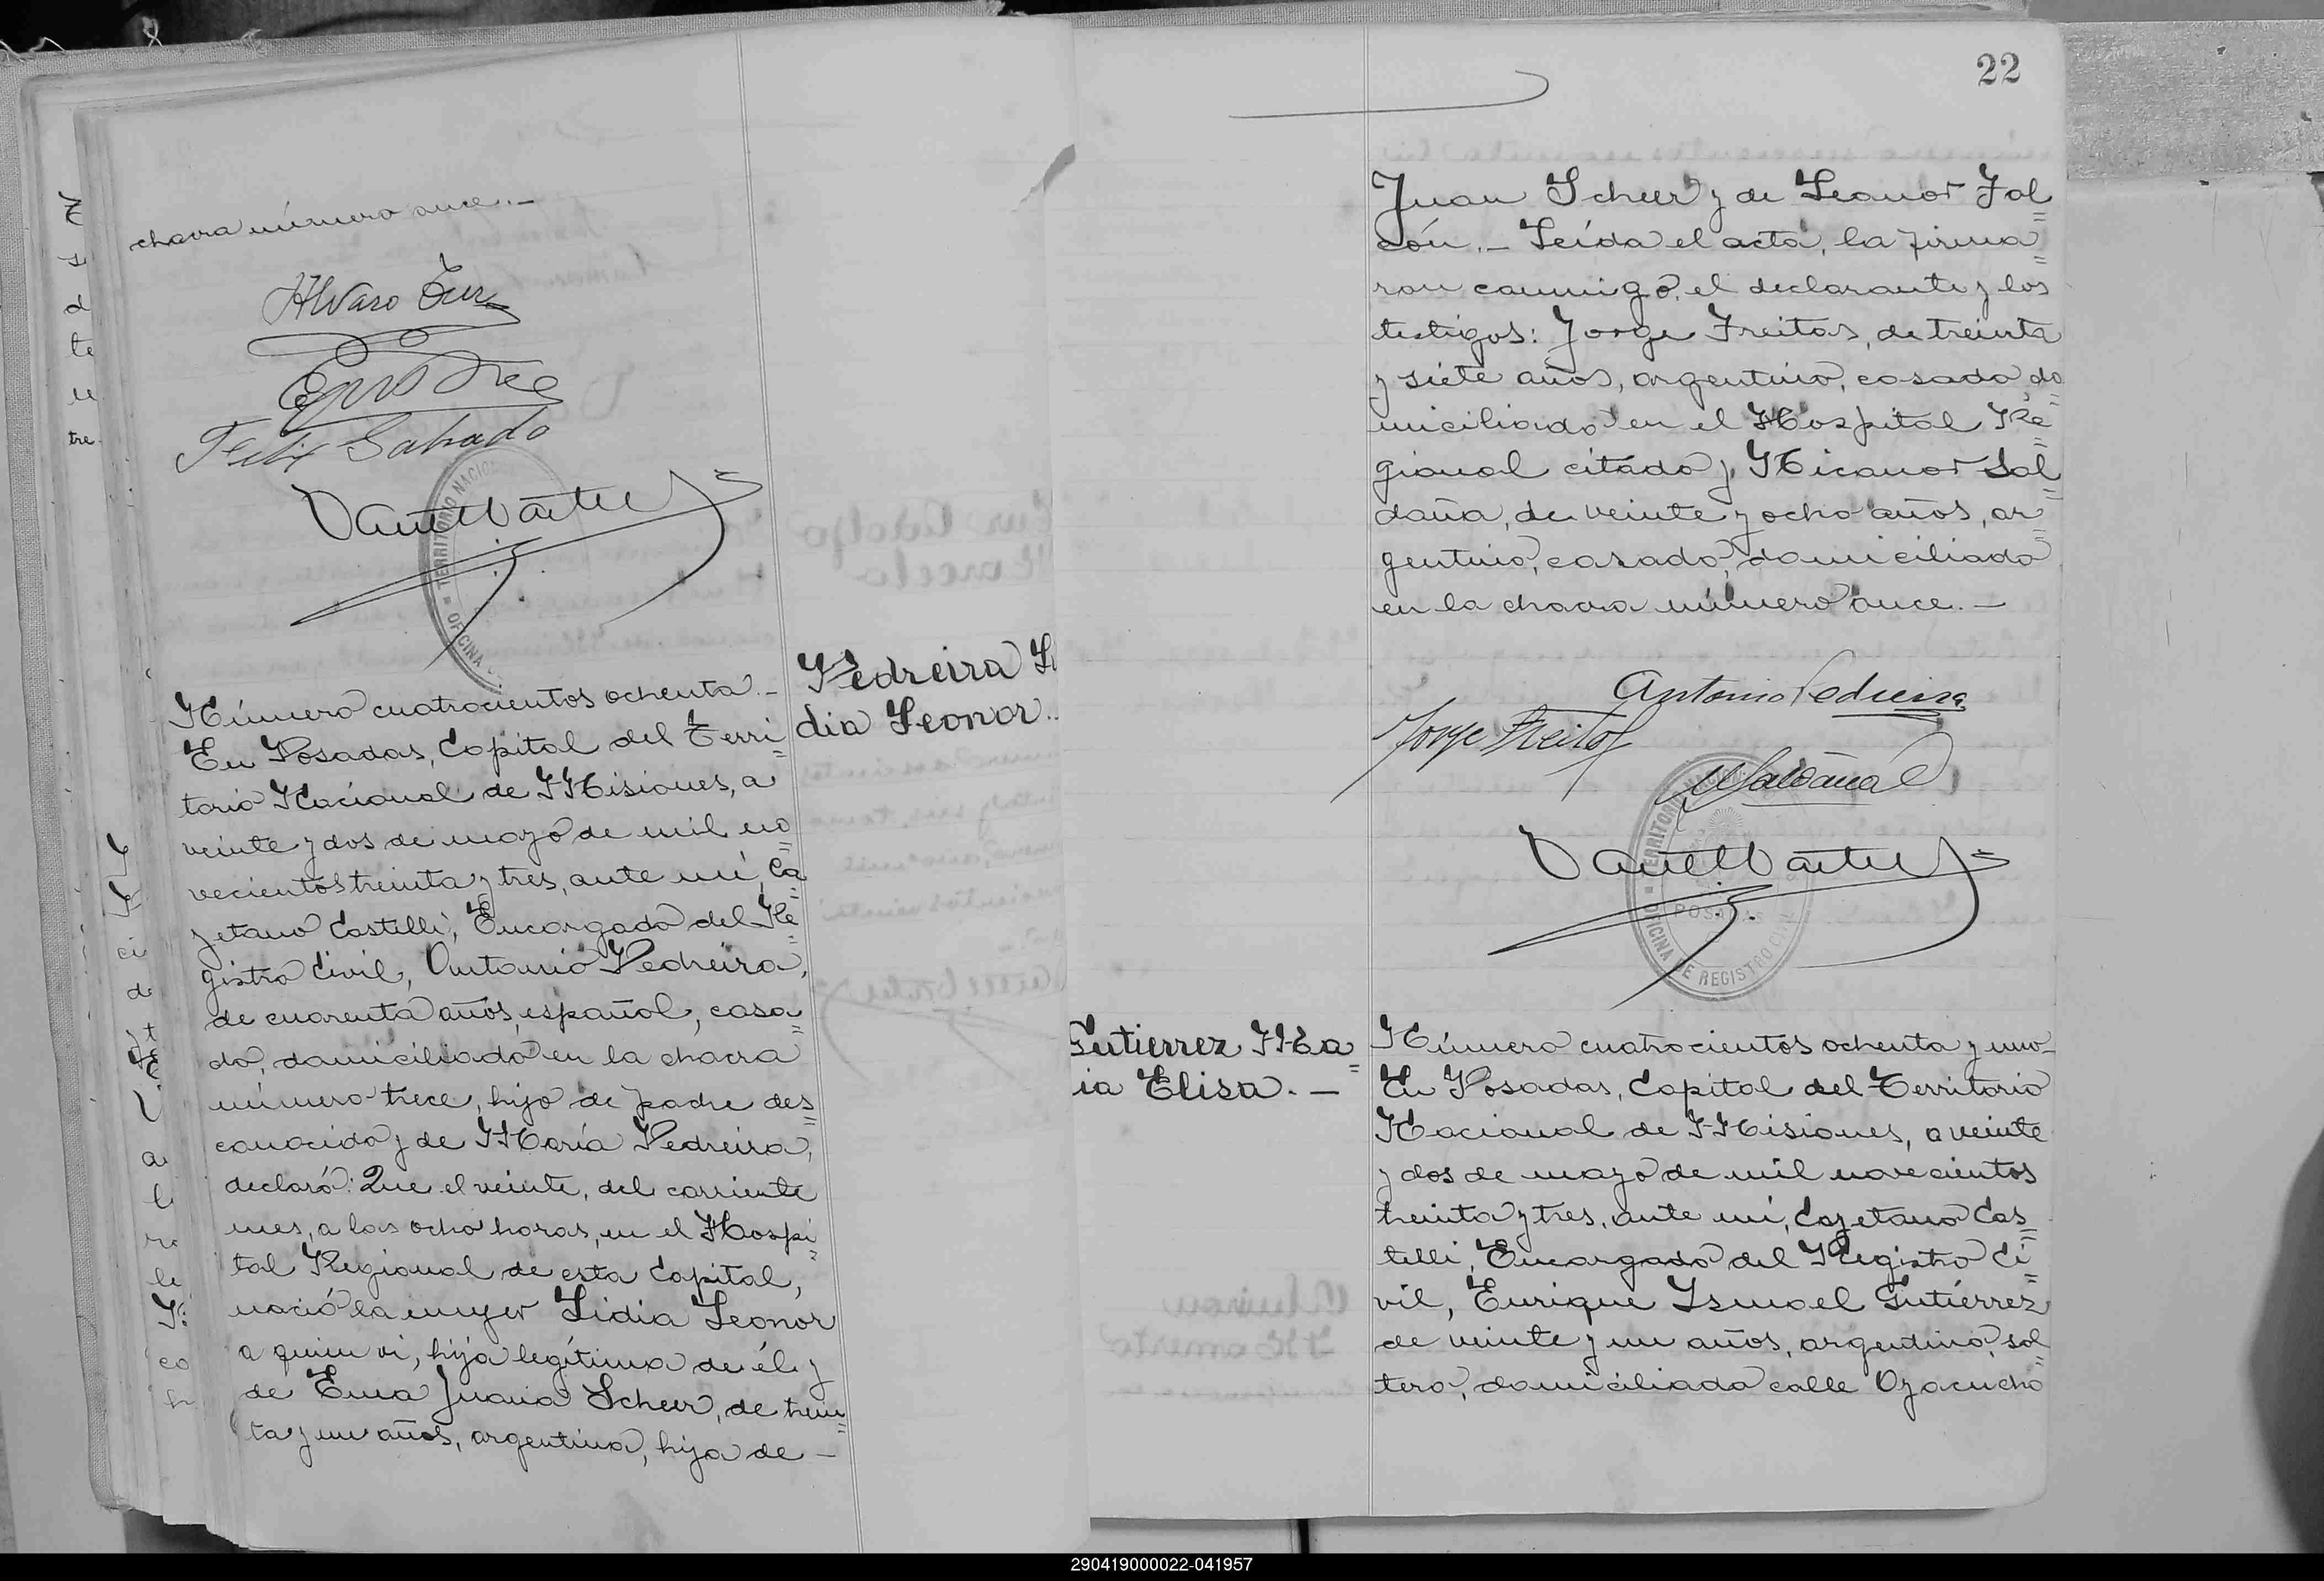 chacra número once. —
Alvaro
Felix Sabado
TERRITORIO NACIONAL
OFICINA
Número cuatrocientos ochenta. —
En Posadas, Capital del Terri=
torio Nacional de Misiones, a
veinte y dos de mayo de mil no=
vecientos treinta y tres, ante mí, Ca=
yetano Castelli, Encargado del Re=
gistro Civil, Antonio Pedreira,
de cuarenta años, español, casa=
do, domiciliado en la chacra
número trece, hijo de padre des=
conocido y de María Pedreira,
declaró: Que el veinte, del corriente
mes, a las ocho horas, en el Hospi=
tal Regional de esta Capital,
nació la mujer Lidia Leonor
a quien vi, hija legítima de él y
de Ema Juana Scheer, de trein=
ta y un años, argentina, hija de —
Pedreira Li
dia Leonor.
22
Juan Scheer y de Leonor Fal=
cón. — Leída el acta, la firma=
ron conmigo, el declarante y los
testigos: Jorge Freitas, de treinta
y siete años, argentino, casado, do=
miciliado en el Hospital Re=
gional citado y Nicanor Sal=
daña, de veinte y ocho años, ar=
gentino, casado, domiciliado
en la chacra número once. —
Antonio Pedreira
Jorge Freitas
N Saldaña
TERRITORIO NACIONAL
POSADAS
OFICINA DE REGISTRO CIVIL
Gutierrez Ma=
ia Elisa. —
Número cuatrocientos ochenta y uno—
En Posadas, Capital del Territorio
Nacional de Misiones, a veinte
y dos de mayo de mil novecientos
treinta y tres, ante mí, Cayetano Cas=
telli, Encargado del Registro Ci=
vil, Enrique Ismael Gutiérrez
de veinte y un años, argentino, sol=
tero, domiciliado calle Ayacucho
290419000022-041957